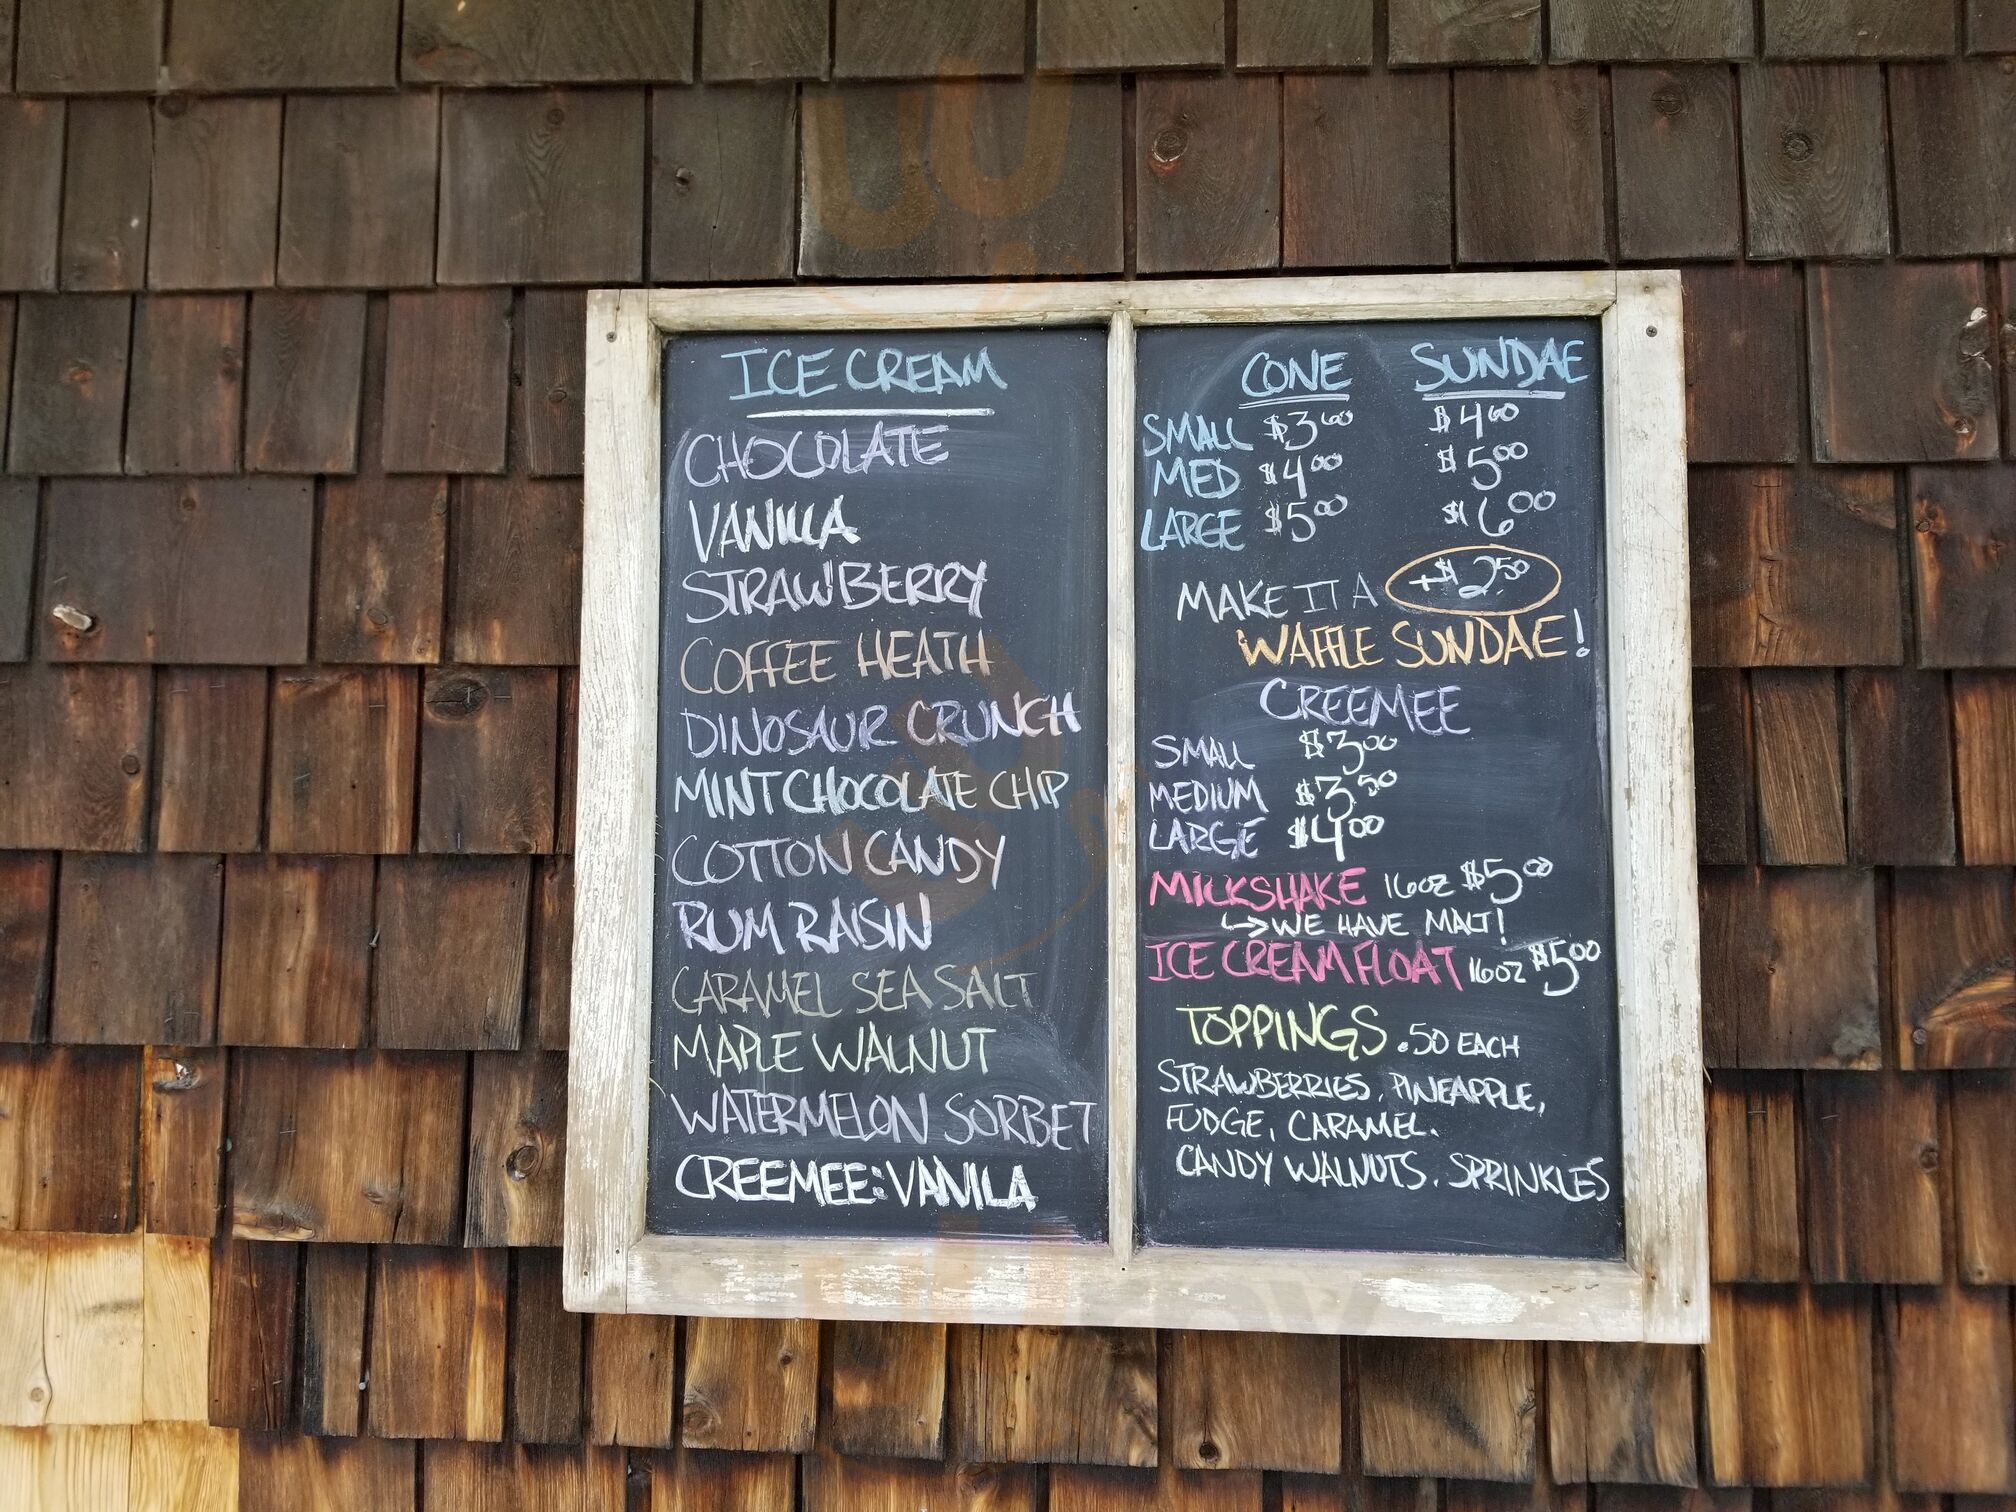 ICE CREAM
CHOCOLATE
VANILLA
STRAWBERRY
COFFEE HEATH
DINOSAUR CRUNCH
MINT CHOCOLATE CHIP
COTTON CANDY
RUM RAISIN
CARAMEL SEA SALT
MAPLE WALNUT
WATERMELON SORBET
CREEMEE: VANILA
CONE SUNDAE
SMALL $3.60 $4.60
MED $4.00 $5.00
LARGE $5.00 $6.00
MAKE IT A +$2.50
WAFFLE SUNDAE!
CREEMEE
SMALL $3.00
MEDIUM $3.50
LARGE $4.00
MILKSHAKE 16oz $5.00
↳ WE HAVE MALT!
ICE CREAM FLOAT 16oz $5.00
TOPPINGS .50 EACH
STRAWBERRIES, PINEAPPLE,
FUDGE, CARAMEL.
CANDY WALNUTS. SPRINKLES